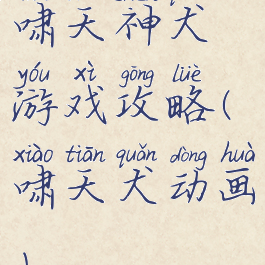 啸天神犬
yóu xì gōng lüè
游戏攻略(
xiào tiān quǎn dòng huà
啸天犬动画
)